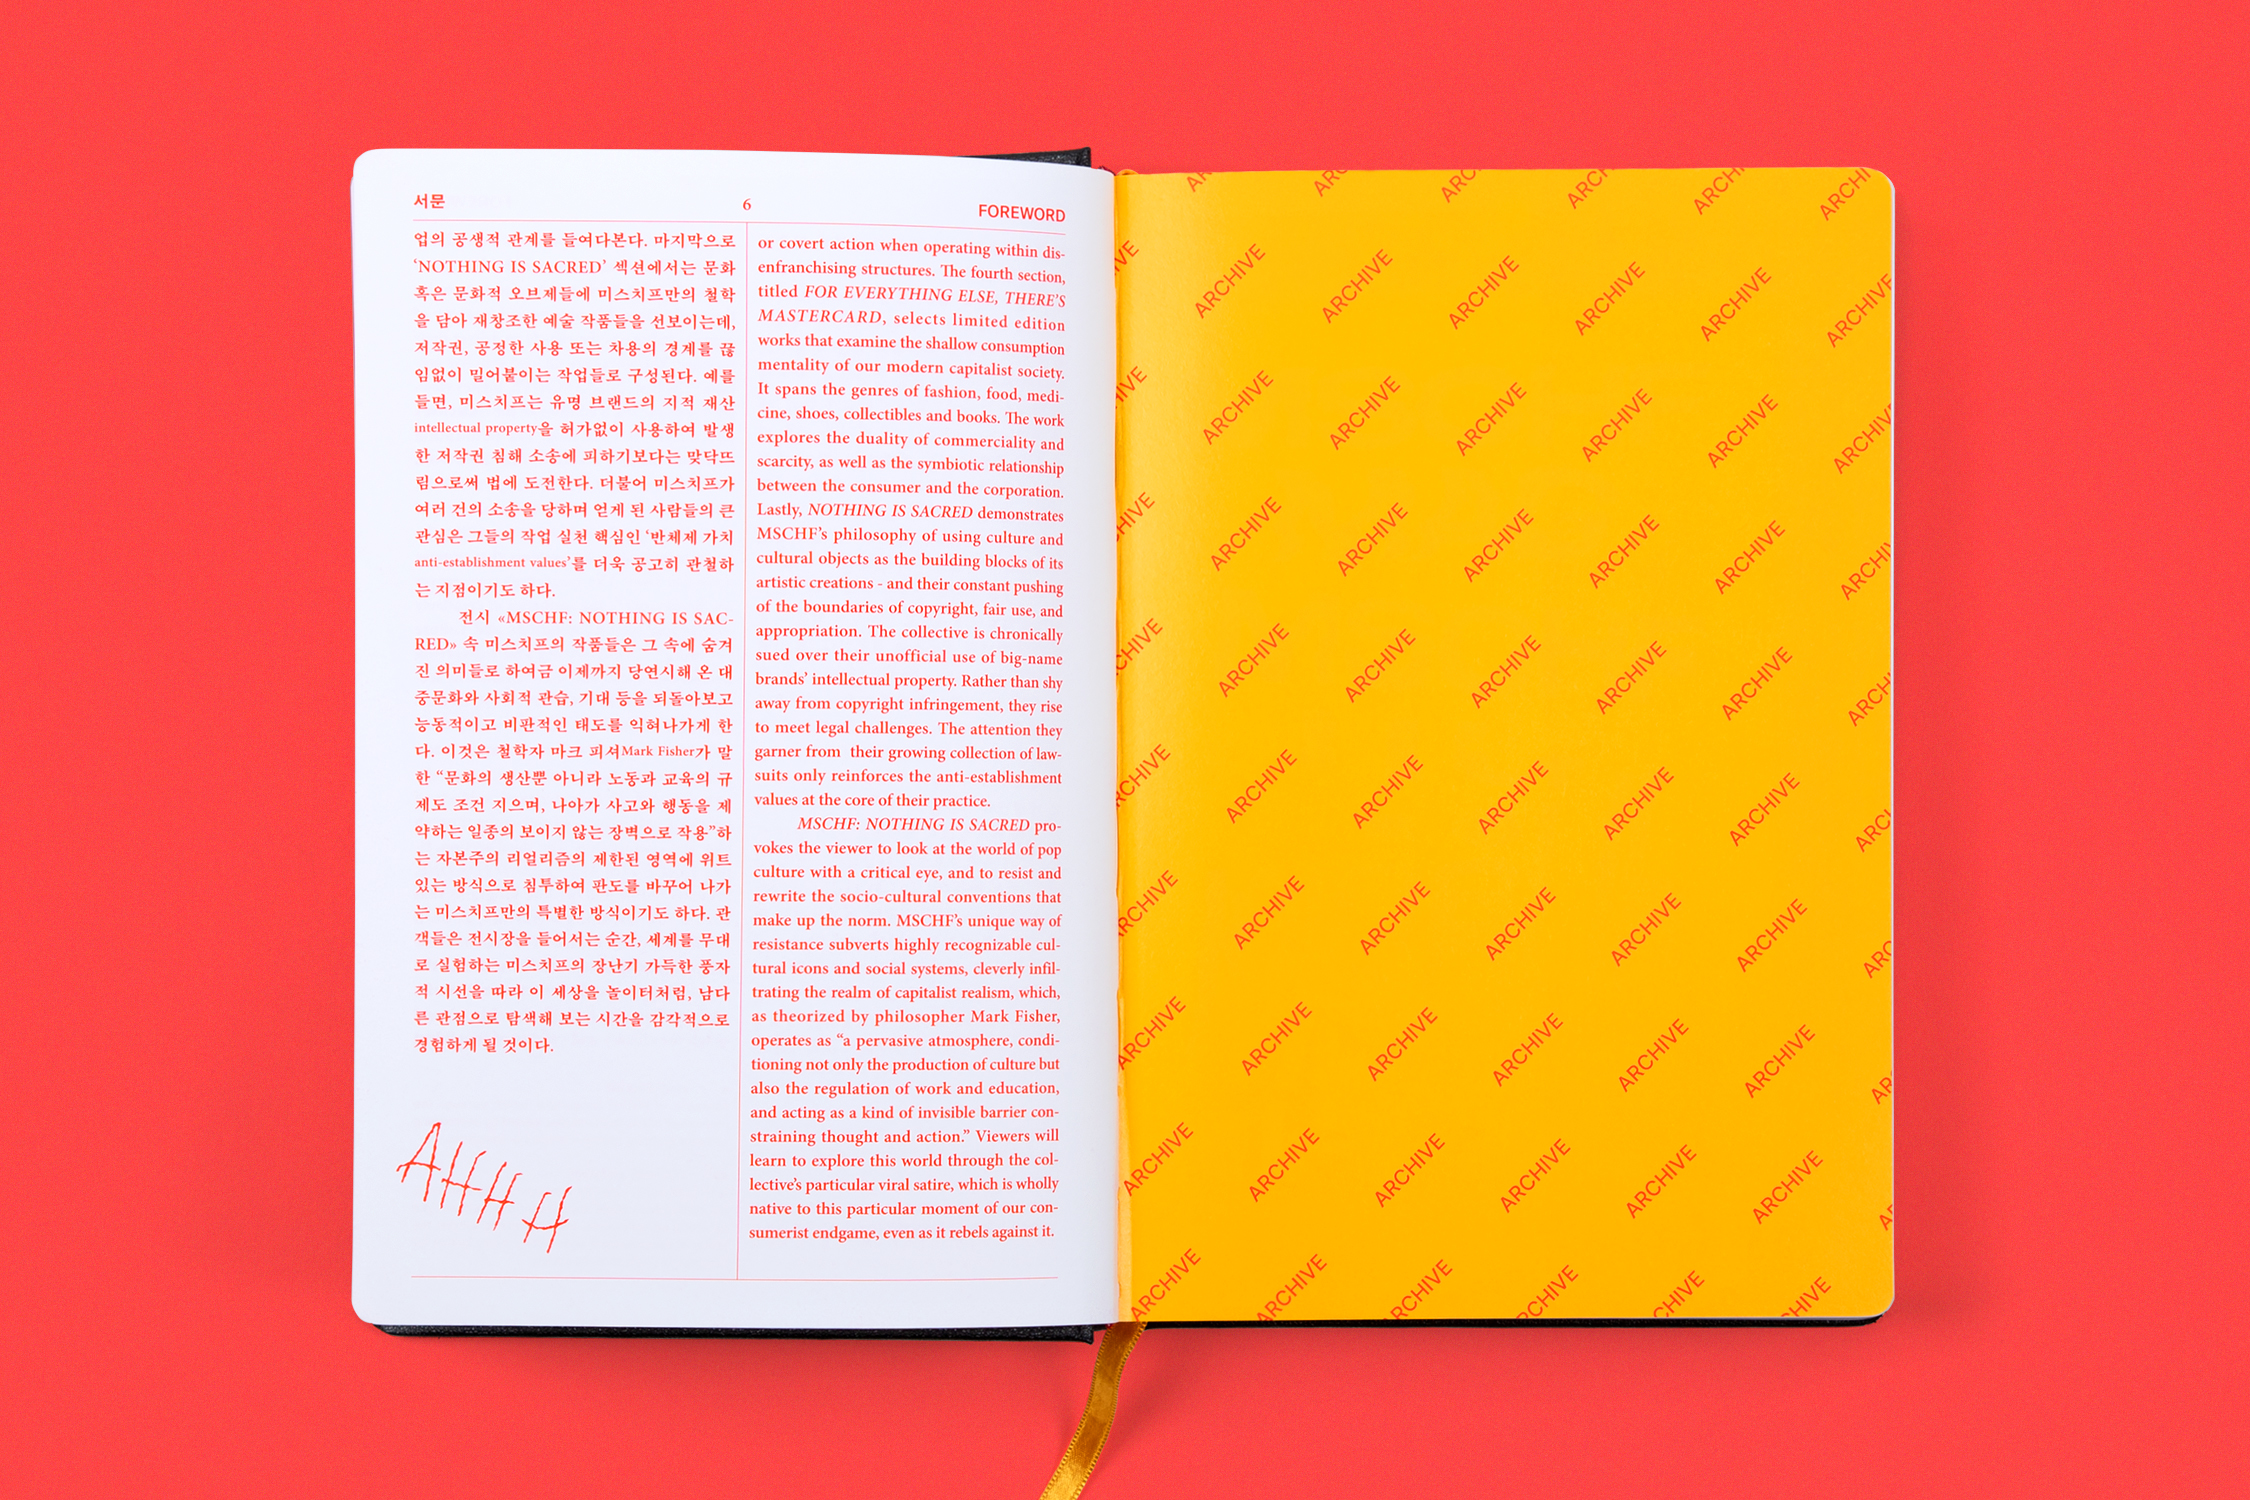 서문
6
FOREWORD
업의 공생적 관계를 들여다본다. 마지막으로
‘NOTHING IS SACRED’ 섹션에서는 문화
혹은 문화적 오브제들에 미스치프만의 철학
을 담아 재창조한 예술 작품들을 선보이는데,
저작권, 공정한 사용 또는 차용의 경계를 끊
임없이 밀어붙이는 작업들로 구성된다. 예를
들면, 미스치프는 유명 브랜드의 지적 재산
intellectual property을 허가없이 사용하여 발생
한 저작권 침해 소송에 피하기보다는 맞닥뜨
림으로써 법에 도전한다. 더불어 미스치프가
여러 건의 소송을 당하며 얻게 된 사람들의 큰
관심은 그들의 작업 실천 핵심인 ‘반체제 가치
anti-establishment values’를 더욱 공고히 관철하
는 지점이기도 하다.
전시 «MSCHF: NOTHING IS SAC-
RED» 속 미스치프의 작품들은 그 속에 숨겨
진 의미들로 하여금 이제까지 당연시해 온 대
중문화와 사회적 관습, 기대 등을 되돌아보고
능동적이고 비판적인 태도를 익혀나가게 한
다. 이것은 철학자 마크 피셔Mark Fisher가 말
한 “문화의 생산뿐 아니라 노동과 교육의 규
제도 조건 지으며, 나아가 사고와 행동을 제
약하는 일종의 보이지 않는 장벽으로 작용”하
는 자본주의 리얼리즘의 제한된 영역에 위트
있는 방식으로 침투하여 판도를 바꾸어 나가
는 미스치프만의 특별한 방식이기도 하다. 관
객들은 전시장을 들어서는 순간, 세계를 무대
로 실험하는 미스치프의 장난기 가득한 풍자
적 시선을 따라 이 세상을 놀이터처럼, 남다
른 관점으로 탐색해 보는 시간을 감각적으로
경험하게 될 것이다.
AHHH
or covert action when operating within dis-
enfranchising structures. The fourth section,
titled FOR EVERYTHING ELSE, THERE’S
MASTERCARD, selects limited edition
works that examine the shallow consumption
mentality of our modern capitalist society.
It spans the genres of fashion, food, medi-
cine, shoes, collectibles and books. The work
explores the duality of commerciality and
scarcity, as well as the symbiotic relationship
between the consumer and the corporation.
Lastly, NOTHING IS SACRED demonstrates
MSCHF’s philosophy of using culture and
cultural objects as the building blocks of its
artistic creations - and their constant pushing
of the boundaries of copyright, fair use, and
appropriation. The collective is chronically
sued over their unofficial use of big-name
brands’ intellectual property. Rather than shy
away from copyright infringement, they rise
to meet legal challenges. The attention they
garner from their growing collection of law-
suits only reinforces the anti-establishment
values at the core of their practice.
MSCHF: NOTHING IS SACRED pro-
vokes the viewer to look at the world of pop
culture with a critical eye, and to resist and
rewrite the socio-cultural conventions that
make up the norm. MSCHF’s unique way of
resistance subverts highly recognizable cul-
tural icons and social systems, cleverly infil-
trating the realm of capitalist realism, which,
as theorized by philosopher Mark Fisher,
operates as “a pervasive atmosphere, condi-
tioning not only the production of culture but
also the regulation of work and education,
and acting as a kind of invisible barrier con-
straining thought and action.” Viewers will
learn to explore this world through the col-
lective’s particular viral satire, which is wholly
native to this particular moment of our con-
sumerist endgame, even as it rebels against it.
ARCHIVE ARCHIVE ARCHIVE ARCHIVE ARCHIVE ARCHIVE
ARCHIVE ARCHIVE ARCHIVE ARCHIVE ARCHIVE ARCHIVE
ARCHIVE ARCHIVE ARCHIVE ARCHIVE ARCHIVE ARCHIVE
ARCHIVE ARCHIVE ARCHIVE ARCHIVE ARCHIVE ARCHIVE
ARCHIVE ARCHIVE ARCHIVE ARCHIVE ARCHIVE ARCHIVE
ARCHIVE ARCHIVE ARCHIVE ARCHIVE ARCHIVE ARCHIVE
ARCHIVE ARCHIVE ARCHIVE ARCHIVE ARCHIVE ARCHIVE
ARCHIVE ARCHIVE ARCHIVE ARCHIVE ARCHIVE ARCHIVE
ARCHIVE ARCHIVE ARCHIVE ARCHIVE ARCHIVE ARCHIVE